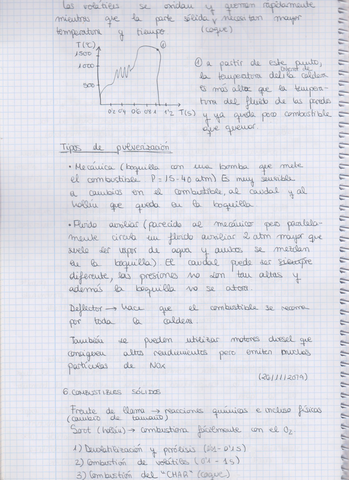 Los volátiles se oxidan y queman rápidamente
mientras que la parte sólida necesitan mayor
temperatura y tiempo (coque)
T(°C)
1500
1000
500
0'2 0'4 0'6 0'8 1 1'2 T(s)
① a partir de este punto,
la temperatura de la caldera
es más alta que la tempera-
tura del fluido de los
y ya queda poco combustible
que quemar
Tipos de pulverización
• Mecánica (boquilla con una bomba que mete
el combustible P = 15-40 atm) Es muy sensible
a cambios en el combustible, al caudal y al
hollín que queda en la boquilla
• Fluido auxiliar (parecido al mecánico pero paralela-
mente circula un fluido auxiliar 2 atm mayor que
suele ser vapor de agua y ambos se mezclan
en la boquilla) El caudal puede ser
diferente, las presiones no son tan altas y
además la boquilla no se atora
Deflector → Hace que el combustible se reparta
por toda la caldera
También se pueden utilizar motores diesel que
consiguen altos rendimientos pero emiten mucho,
partículas de NOx
6. COMBUSTIBLES SÓLIDOS
Frente de llama → reacciones químicas e incluso físicas
(cambio de tamaño)
Soot (hollín) → combustiona fácilmente con el O₂
1) Devolatilización y pirólisis
2) Combustión de volátiles (0'1 - 1s)
3) Combustión del "CHAR" (coque)